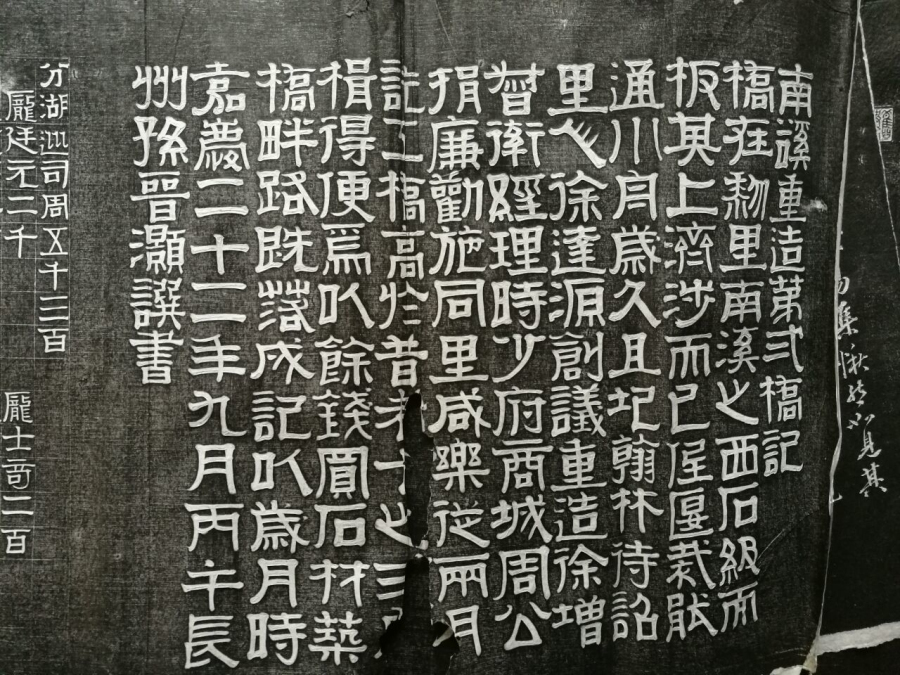 如見其
南谿重造第弍橋記
橋在黎里南溪之西石級而
板其上濟涉而已
通川月歲久且圮翰林待詔
里人徐達源創議重造徐增
經理時少府商城周公
捐廉勸施同里咸樂從兩月
訖工橋高於昔者十之三
楫得便焉以餘錢石材築
橋畔路既落成記以歲月時
嘉慶二十二年九月丙午長
州孫晉灝譔書
分湖巡司周五千三百
龐廷元二千 龐士奇二百